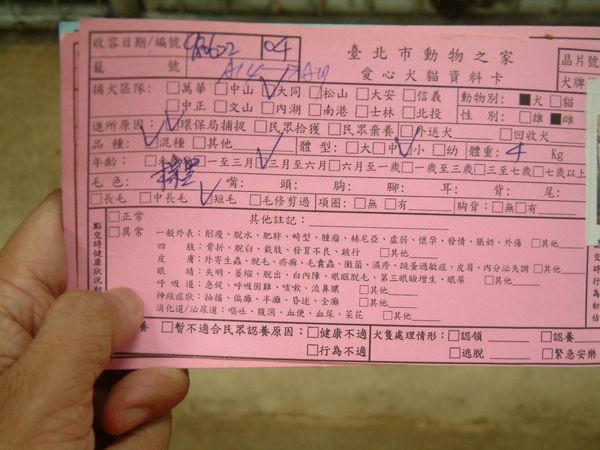 收容日期/編號 980622 04 臺北市動物之家 晶片號
籠 號 愛心犬貓資料卡 犬牌
捕犬區隊: □萬華 □中山 □大同 □松山 □大安 □信義 動物別: ■犬 □貓
□中正 □文山 □內湖 □南港 □士林 □北投 性 別: □雄 ■雌
進所原因: □環保局捕捉 □民眾拾獲 □民眾棄養 □外送犬 □回收犬
品 種: □混種 □其他 體 型: □大 □中 □小 □幼 體重: 4 Kg
年齡: □一至三月 □三月至六月 □六月至一歲 □一歲至三歲 □三至七歲 □七歲以上
毛 色: 嘴: 頭: 胸: 腳: 耳: 背: 尾:
□長毛 □中長毛 □短毛 □毛修剪過 項圈: □無 □有 胸背: □無 □有
點交時健康狀況 □正常 其他註記:
□異常 一般外表: 削瘦、脫水、肥胖、畸型、腫瘤、赫尼亞、虛弱、懷孕、發情、脹奶、外傷 □其他
四 肢: 骨折、脫臼、截肢、發育不良、跛行 □其他
皮 膚: 外寄生蟲、脫毛、疥癬、毛囊蟲、黴菌、濕疹、跳蚤過敏症、皮屑、內分泌失調 □其他
眼 睛: 失明、萎縮、脫出、白內障、眼眶脫毛、第三眼瞼增生、眼屎 □其他
呼 吸 道: 急促、呼吸困難、咳嗽、流鼻膿 □其他
神經症狀: 抽搐、偏癱、半癱、昏迷、全癱 □其他
消化道/泌尿道: 嘔吐、腹瀉、血便、血尿、菜花 □其他
養 □暫不適合民眾認養原因: □健康不適 犬隻處理情形: □認領 □認養
□行為不適 □逃脫 □緊急安樂